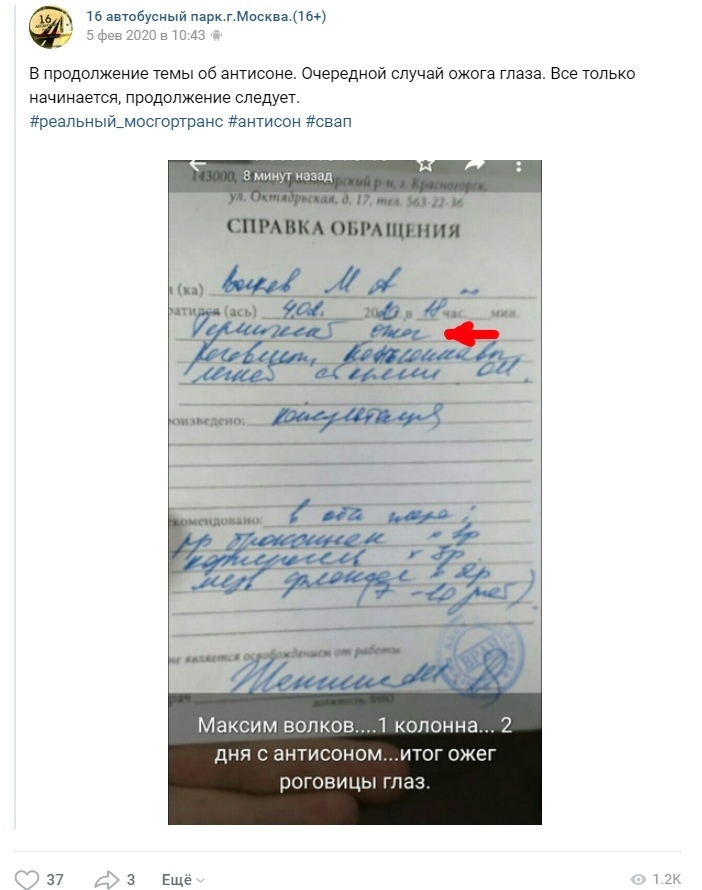 16 автобусный парк.г.Москва.(16+)
5 фев 2020 в 10:43
В продолжение темы об антисоне. Очередной случай ожога глаза. Все только
начинается, продолжение следует.
#реальный_мосгортранс #антисон #свап
8 минут назад
143000, Красногорский р-н, г. Красногорск,
ул. Октябрьская, д. 17, тел. 563-22-36
СПРАВКА ОБРАЩЕНИЯ
(ка) Волков М А
ратился (ась) 4.02. 2020г. в 18 час. мин.
Термический ожог
роговицы, конъюнктивы
легкой степени OU.
роизведено: консультация
комендовано: в оба глаза:
(7-10 дней)
не является освобождением от работы
ВРАЧ
должность, ФИО
Максим волков....1 колонна... 2
дня с антисоном...итог ожег
роговицы глаз.
37
3
Ещё
1.2K